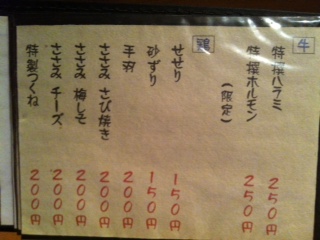 牛
特撰ハラミ 250円
特撰ホルモン 250円
(限定)
鶏
せせり 150円
砂ずり 150円
手羽 200円
ささみ さび焼き 200円
ささみ 梅しそ 200円
ささみ チーズ 200円
特製つくね 200円